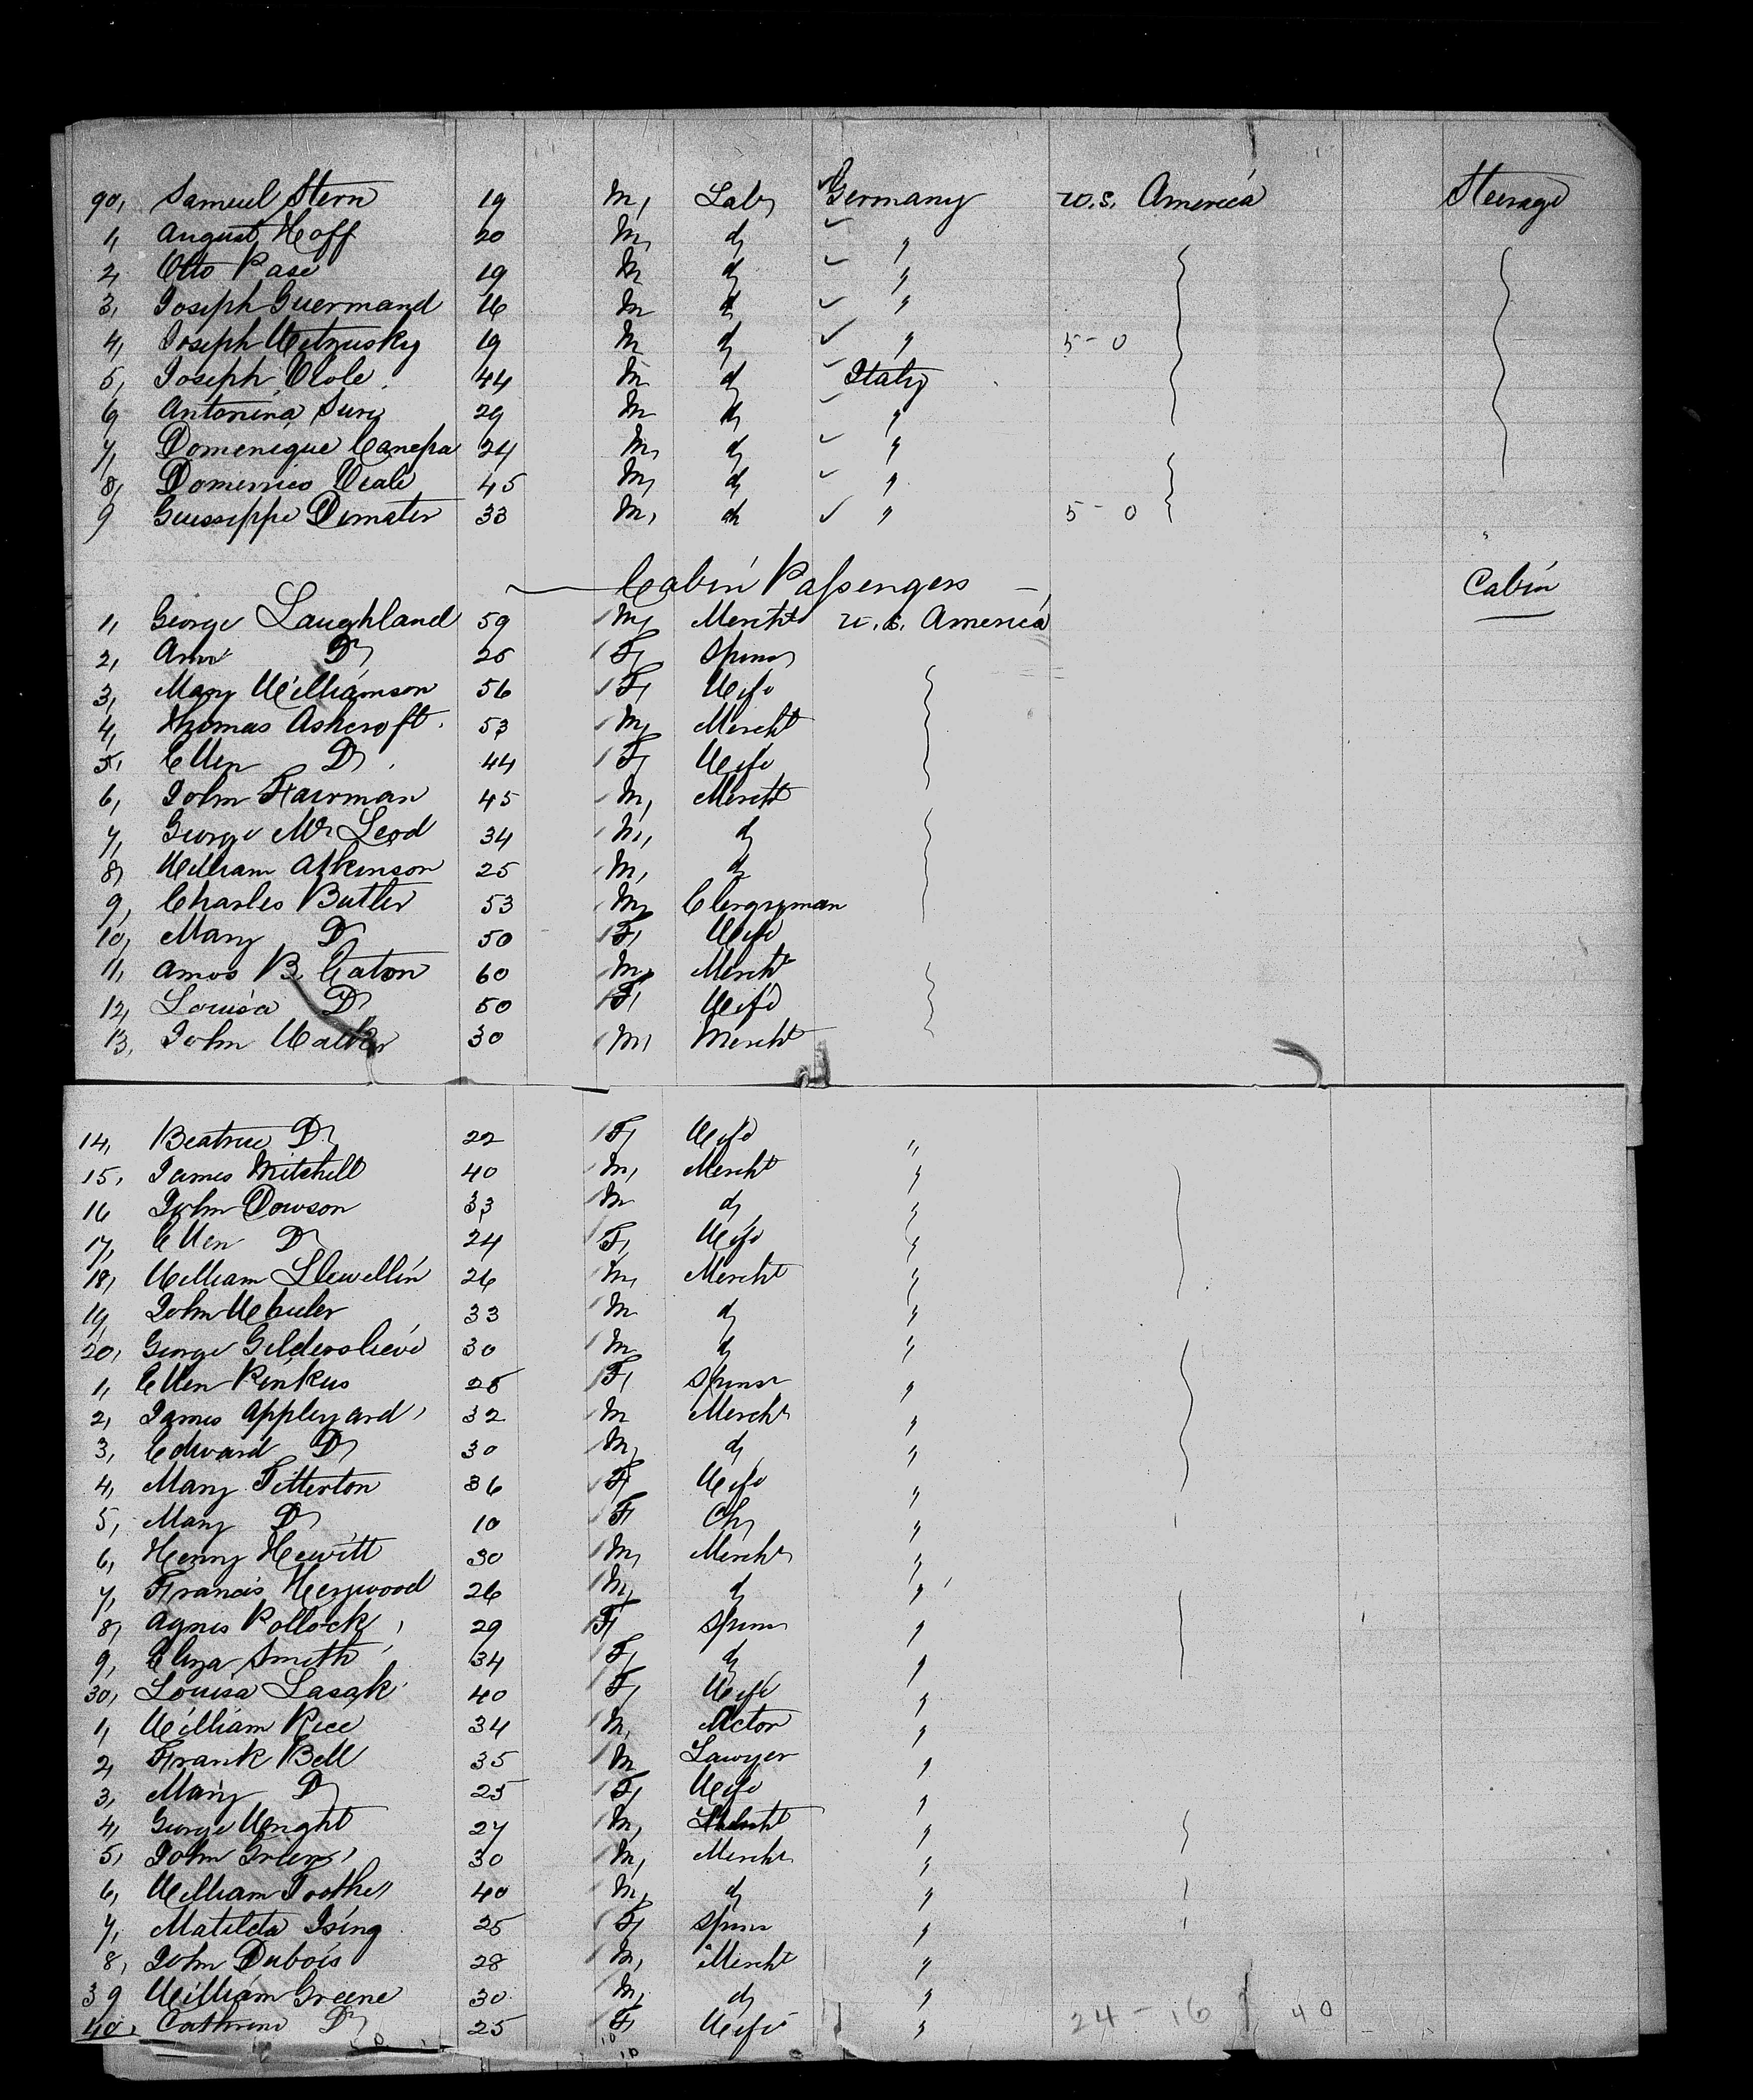 90, Samuel Stern 19 M, Labr Germany U.S. America Steerage
1, August Hoff 20 M, do "
2, Otto Pase 19 M do "
3, Joseph Guermand 16 M do "
4, Joseph Wetzusky 19 M do " 5 - 0
5, Joseph Viole 44 M do Italy
6, Antonina Sury 29 M do "
7, Domenique Canepa 24 M, do "
8, Domenico Veale 45 M, do "
9 Guisseppe Demater 33 M, do " 5 - 0
Cabin Passengers Cabin
1, George Laughland 59 M, Mercht U.S. America
2, Ann Do 25 F, Spinr
3, Mary Williamson 56 F, Wife
4, Thomas Ashcroft 53 M, Mercht
5, Ellen Do 44 F, Wife
6, John Fairman 45 M, Mercht
7, George McLeod 34 M, do
8, William Atkinson 25 M, do
9, Charles Butler 53 M, Clergyman
10, Mary Do 50 F, Wife
11, Amos B. Eaton 60 M, Mercht
12, Louisa Do 50 F, Wife
13, John Walker 30 M, Mercht
14, Beatrice Do 22 F, Wife "
15, James Mitchell 40 M, Mercht "
16 John Dowson 33 M do "
17, Ellen Do 24 F, Wife "
18, William Llewellin 26 M, Mercht "
19, John Wheeler 33 M do "
20, George Gildersleive 30 M do "
1, Ellen Pinkus 25 F, Spinsr "
2, James Appleyard 32 M Mercht "
3, Edward Do 30 M, do "
4, Mary Titterton 36 F, Wife "
5, Mary Do 10 F, Ch, "
6, Henry Hewitt 30 M, Mercht "
7, Francis Heywood 26 M, do "
8, Agnes Pollock 29 F, Spinr "
9, Eliza Smith 34 F, do "
30, Louisa Lasak 40 F, Wife "
1, William Rice 34 M, Actor "
2, Frank Bell 35 M Lawyer "
3, Mary Do 25 F, Wife "
4, George Wright 27 M, Mercht "
5, John Green 30 M, Mercht "
6, William Toothe 40 M, do "
7, Matilda Ising 25 F, Spinr "
8, John Dubois 28 M, Mercht "
39 William Greene 30 M, do "
40, Cathrine Do 25 F, Wife " 24 - 16 40